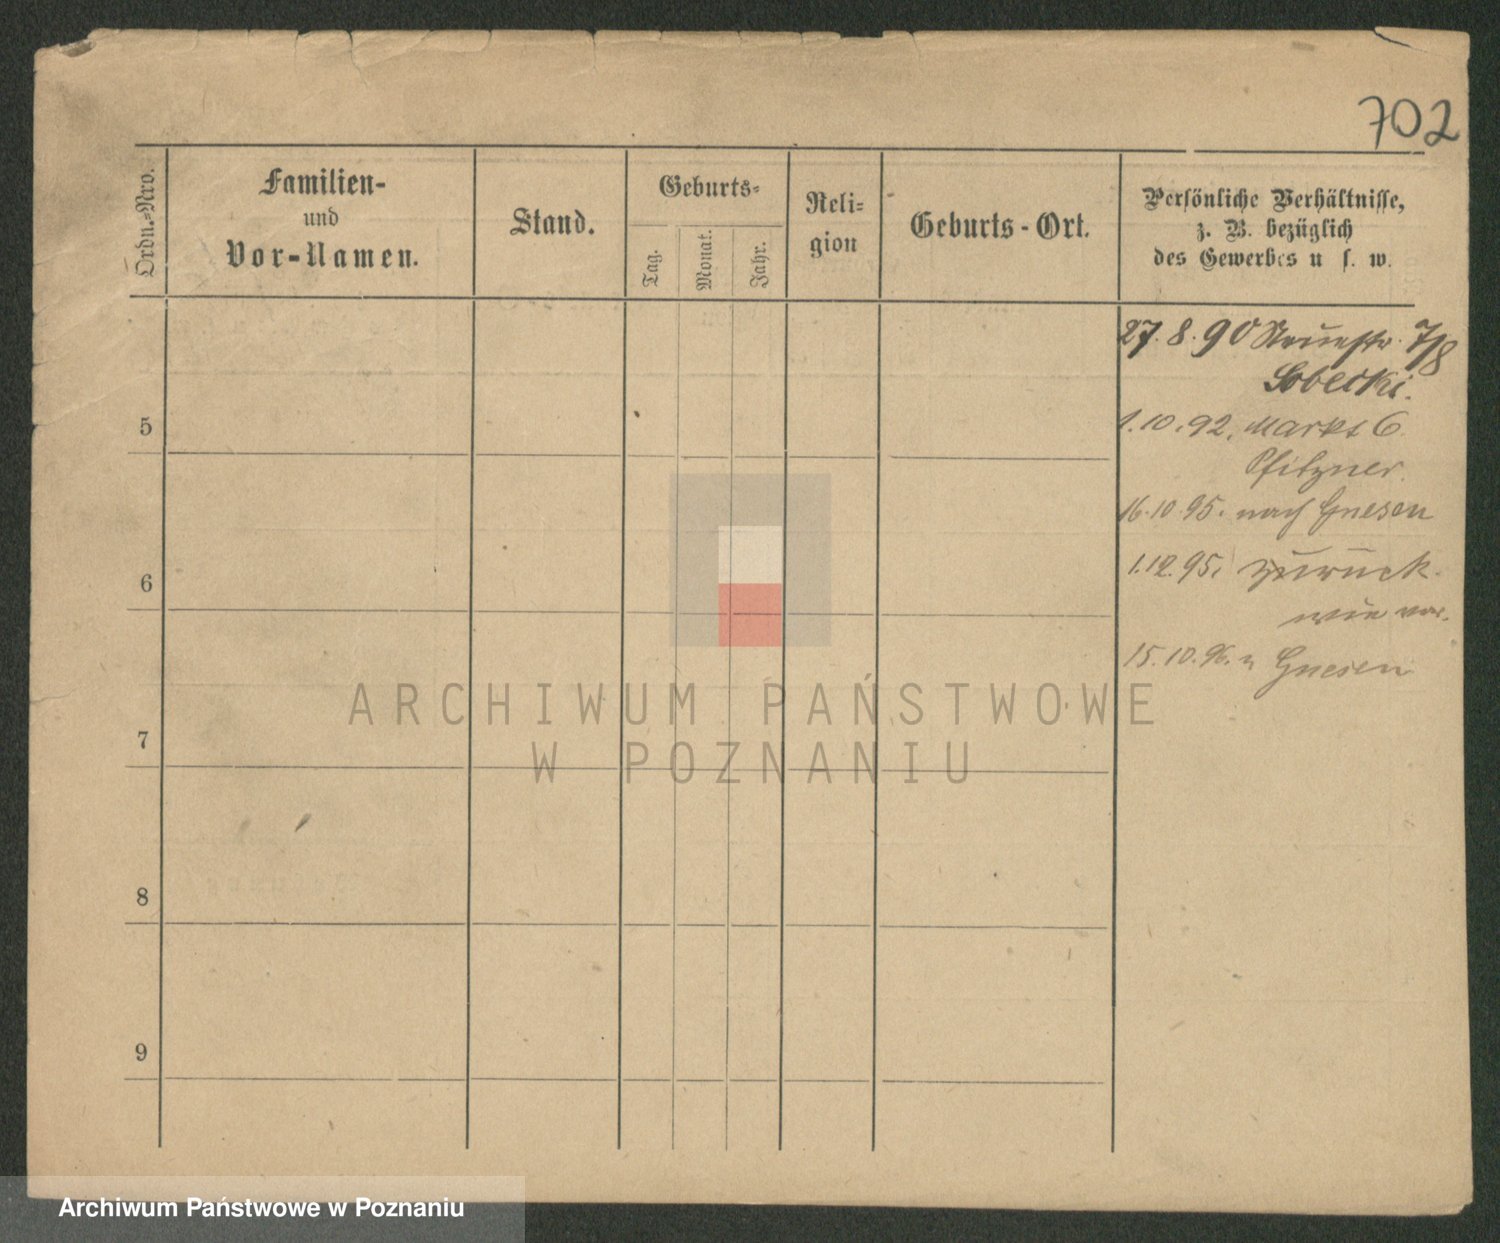 702
Ordn.-Nro.
Familien-
und
Vor-Namen.
Stand.
Geburts-
Tag.
Monat.
Jahr.
Reli-
gion
Geburts-Ort.
Persönliche Verhältnisse,
z. B. bezüglich
des Gewerbes u s. w.
27.8.90 Neuestr. 7/8
Sobecki.
1.10.92. Markt 6.
Pfitzner.
16.10.95. nach Gnesen
1.12.95. zurück
wie vor.
15.10.96. n Gnesen
5
6
7
8
9
ARCHIWUM PAŃSTWOWE
W POZNANIU
Archiwum Państwowe w Poznaniu